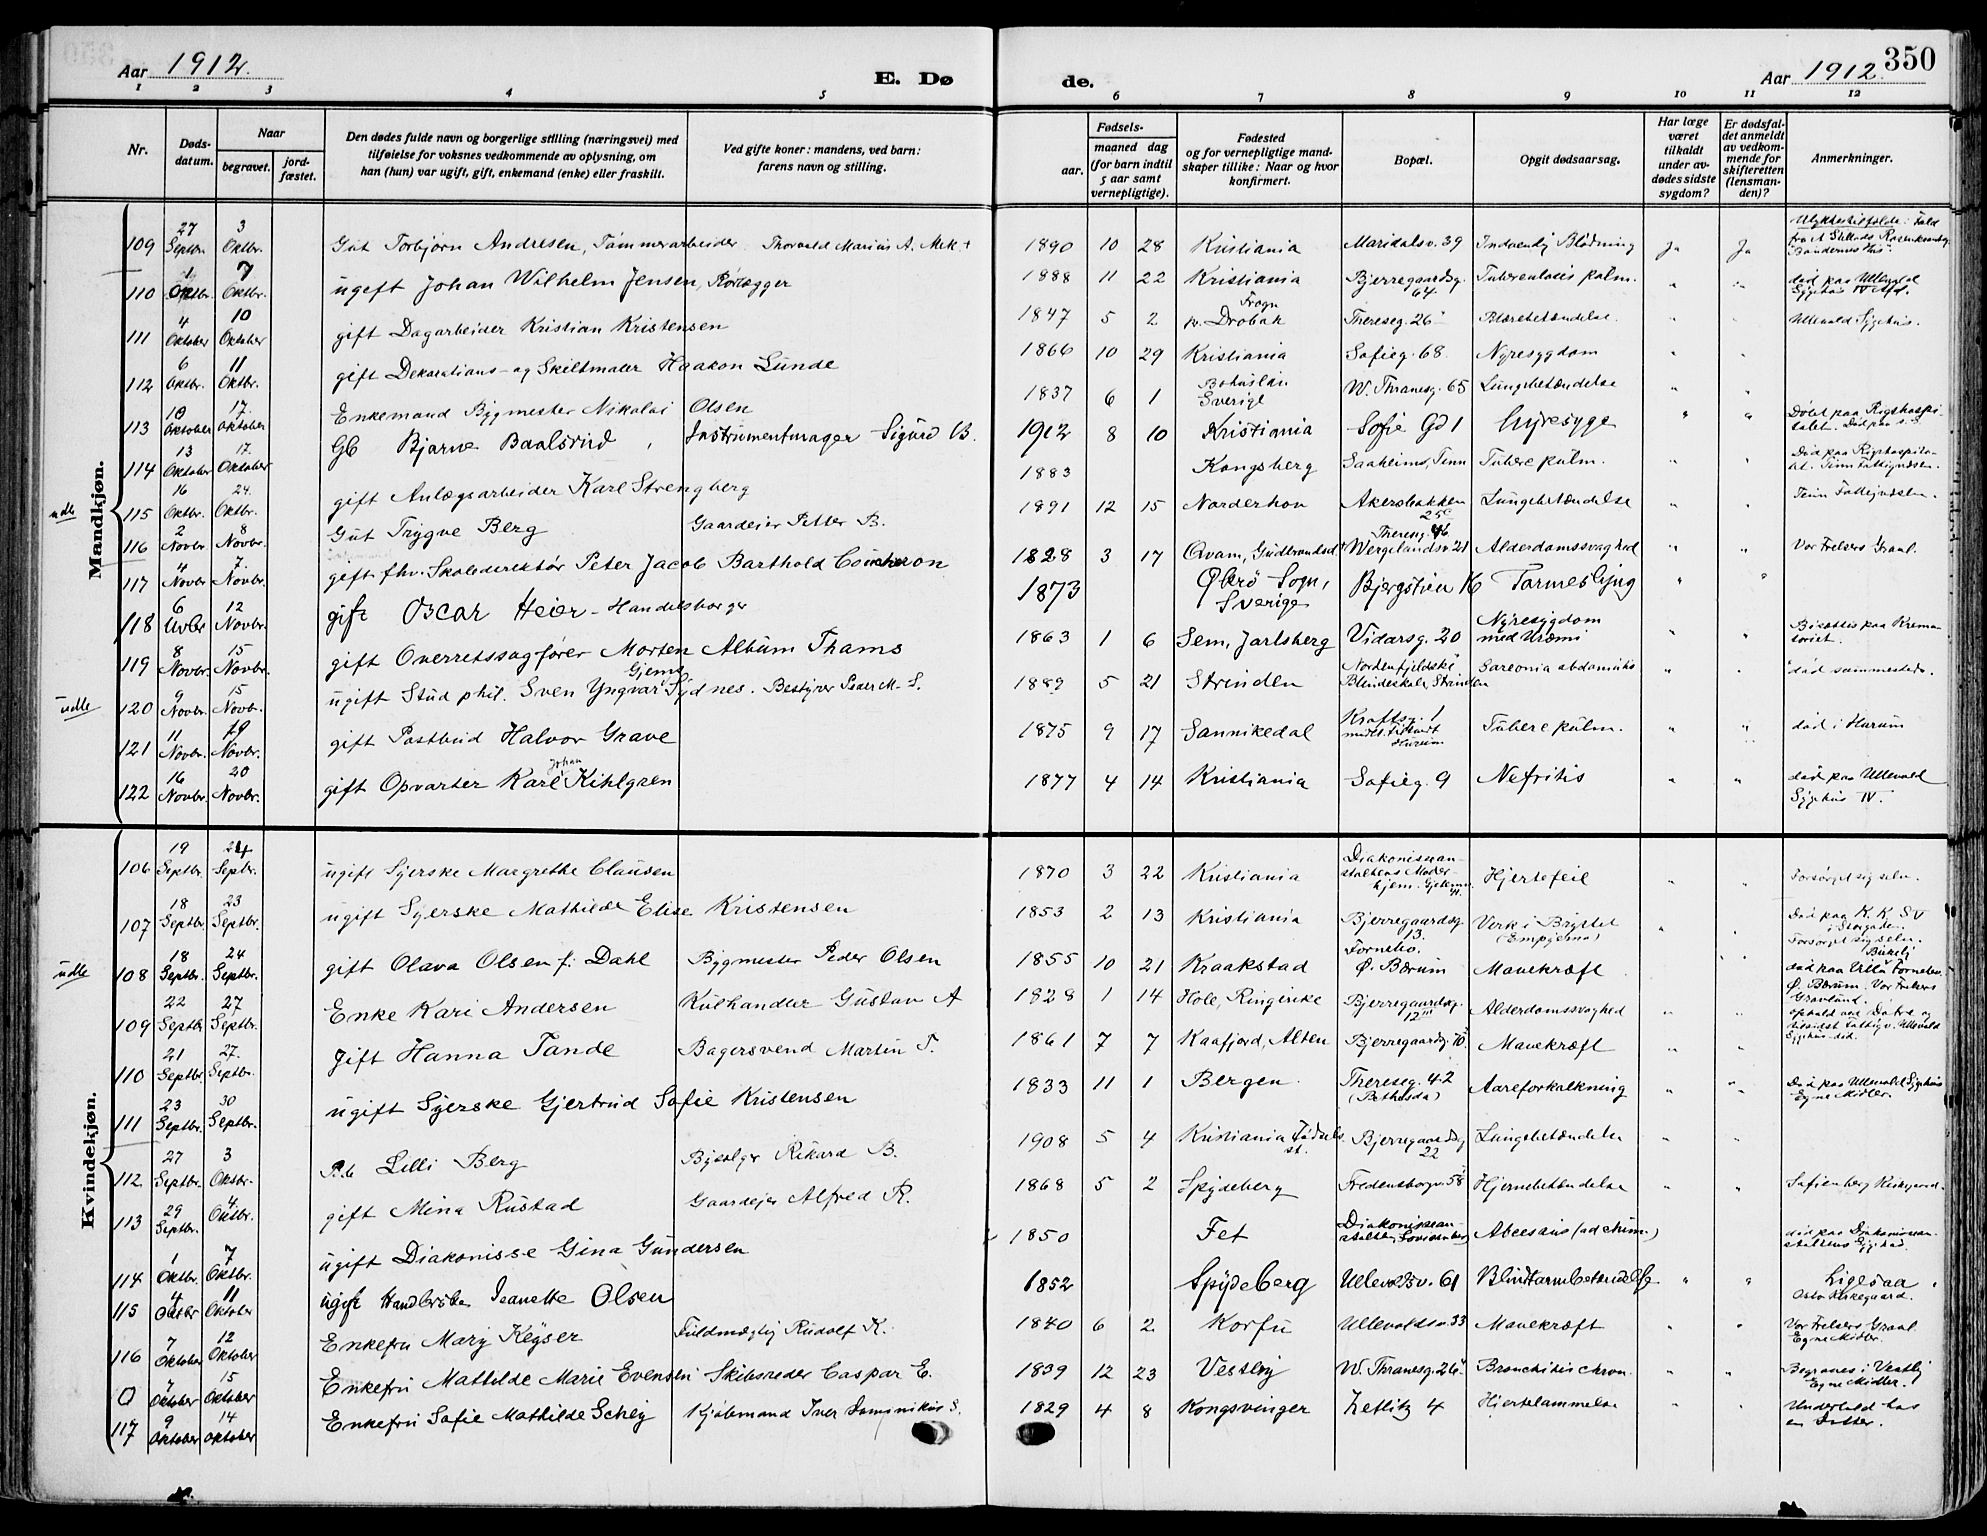 350
Aar 1912.
E. Dø
de.
Aar 1912.
1 2 3 4 5 6 7 8 9 10 11 12
Nr.
Døds-
datum.
Naar
begravet.
jord-
fæstet.
Den dødes fulde navn og borgerlige stilling (næringsvei) med
tilføielse for voksnes vedkommende av oplysning, om
han (hun) var ugift, gift, enkemand (enke) eller fraskilt.
Ved gifte koner: mandens, ved barn:
farens navn og stilling.
aar.
Fødsels-
maaned dag
(for barn indtil
5 aar samt
vernepligtige).
Fødested
og for vernepligtige mand-
skaper tillike: Naar og hvor
konfirmert.
Bopæl.
Opgit dødsaarsag.
Har læge
været
tilkaldt
under av-
dødes sidste
sygdom?
Er dødsfal-
det anmeldt
av vedkom-
mende for
skifteretten
(lensman-
den)?
Anmerkninger.
Mandkjøn.
109 27 Septbr. 3 Oktbr. Gut Torbjørn Andresen, Tømmerarbeider Thorvald Marius A. Mek + 1890 10 28 Kristiania Maridalsv. 39 Indvendig Blødning Ja Ja Ulykkestilfælde: Fald
110 1 Oktbr. 7 Oktbr. ugift Johan Wilhelm Jensen, Rørlægger 1888 11 22 Kristiania Bjerregaardsg. 64 Tuberculosis pulm. " " død paa Ullevaal Sygehus IV Afd.
111 4 Oktober 10 Oktober gift Dagarbeider Kristian Kristensen 1847 5 2 Frogn pr. Drøbak Thereseg. 26 Blærebetændelse " " Ullevaal Sygehus.
112 6 Oktbr. 11 Oktbr. gift Dekorations- og Skiltmaler Haakon Lunde 1866 10 29 Kristiania Sofieg. 68. Nyresygdom " "
113 10 Oktober 17 Oktober Enkemand Bygmester Nikolai Olsen 1837 6 1 Bohuslän Sverige W. Thranesg. 65 Lungebetændelse " "
114 13 Oktober 17. Oktober Gb Bjarne Baalsrud, Instrumentmager Sigurd B. 1912 8 10 Kristiania Sofie Gd 1 " " Døbt paa Rigshospitalet. Død paa s. S.
115 16 Oktbr. 24. Oktbr. gift Anlægsarbeider Karl Strengberg 1883 Kongsberg Saaheim, Tinn Tuberc pulm. " " Død paa Rigshospitalet. Tinn Fattigvæsen.
116 2 Novbr. 8 Novbr. Gut Trygve Berg Gaardeier Petter B. 1891 12 15 Norderhov Akersbakken 25c Lungebetændelse " "
117 4 Novbr 7. Novbr. gift fhv. Skoledirektør Peter Jacob Barthold Coucheron 1828 3 17 Qvam, Gudbrandsd. Thereseg. 46 Wergelandsv 21 Alderdomssvaghed " " Vor Frelsers Gravl.
118 6 Novbr 12 Novbr. gift Oscar Heier - Handelsborger 1873 Sogn, Sverige Bjergstien 16 " "
119 8 Novbr. 15 Novbr. gift Overretssagfører Morten Album Thams 1863 1 6 Sem, Jarlsberg Vidarsg. 20 Nyresygdom med Uræmi " " Bisættes paa Krematoriet.
120 9 Novbr. 15 Novb. ugift Stud phil. Sven Yngvar Gjems Sydnes. Bestyrer Peder M. S. 1889 5 21 Strinden Nordenfjeldske Blindeskole, Strinden abdominis " " død sammesteds.
121 11 Novbr. 19 Novbr. gift Postbud Halvor Grave 1875 9 17 Sannikedal Kraftsg. 1 midlertidigt Hurum Tuberc pulm. " " død i Hurum
122 16 Novbr. 20 Novbr. gift Opvarter Karl Johan Kihlgren 1877 4 14 Kristiania Sofieg. 9 Nefritis " " død paa Ullevaal Sygehus IV.
Kvindekjøn.
106 19 Septbr. 24 Septbr. ugift Syerske Margrethe Clausen 1870 3 22 Kristiania Diakonissean- staltens Moder- hjem. Hjertefeil " " Forsørget sig selv.
107 18 Septbr. 23 Septbr. ugift Syerske Mathilde Elise Kristensen 1853 2 13 Kristiania Bjerregaardsg. 13. Verk i Brystet (Empyema) " " Forsørget sig selv.
udle 108 18 Septbr. 24 Septbr. gift Olava Olsen f. Dahl Bygmester Peder Olsen 1855 10 21 Kraakstad Fornebo. Ø. Bærum Mavekræft død paa Villa Fornebo. Ø. Bærum. Vor Frelsers Gravlund.
109 22 Septbr. 27 Septbr. Enke Kari Andersen Kulhandler Gustav A 1828 1 14 Hole, Ringerike Bjerregaardsg. 12 III Alderdomssvaghed " "
110 21 Septbr. 27. Septbr. gift Hanna Tande Bagersvend Martin T. 1861 7 7 Kaafjord, Alten Bjerregaardsg. Mavekræft " "
111 23 Septbr. 30 Septbr. ugift Syerske Gjertrud Sofie Kristensen 1833 11 1 Bergen. Thereseg. 42 (Bethesda) Aareforkalkning " " Død paa Ullevaal Sygehus Egne Midler.
112 27 Septbr. 3 Oktbr. Pb Lilli Berg Bysælger Rikard B. 1908 5 4 Kristiania Fødsels st. Bjerregaardsg 22 Lungebetændelse " "
113 29 Septbr. 4 Oktbr. gift Mina Rustad Gaardeier Alfred R. 1868 5 2 Spydeberg Fredensborgv. 58 Hjernebetændelse " " Sofienberg Kirkegaard.
114 1 Oktbr. 7 Oktbr. ugift Diakonisse Gina Gundersen 1850 Fet Diakonissean- stalten Lovisenberg død paa Diakonissean- staltens Sygehus.
115 4 Oktbr 11 Oktober ugift Jeanette Olsen 1852 Spydeberg Ullevoldsv. 61 Blindtarmbetændelse " " Ligesaa Oslo Kirkegaard.
116 7 Oktober 12 Oktober Enkefru Mary Keyser Fuldmægtig Rudolf K. 1840 6 2 Korfu Ullevoldsv. 33 Mavekræft " " Vor Frelsers Gravl. Egne Midler.
0 7 Oktober 15 Oktober Enkefru Mathilde Marie Evensen Skibsreder Caspar E. 1839 12 23 Vestby W. Thranesg. 26 Bronchitis chron. " " Begraves i Vestby Egne Midler.
117 9 Oktober 14 Oktober Enkefru Sofie Mathilde Scheig Kjøbmand Iver Dominikus S. 1829 4 8 Kongsvinger Zetlitz 4 Hjertelammelse " " Underhold hos en Datter.